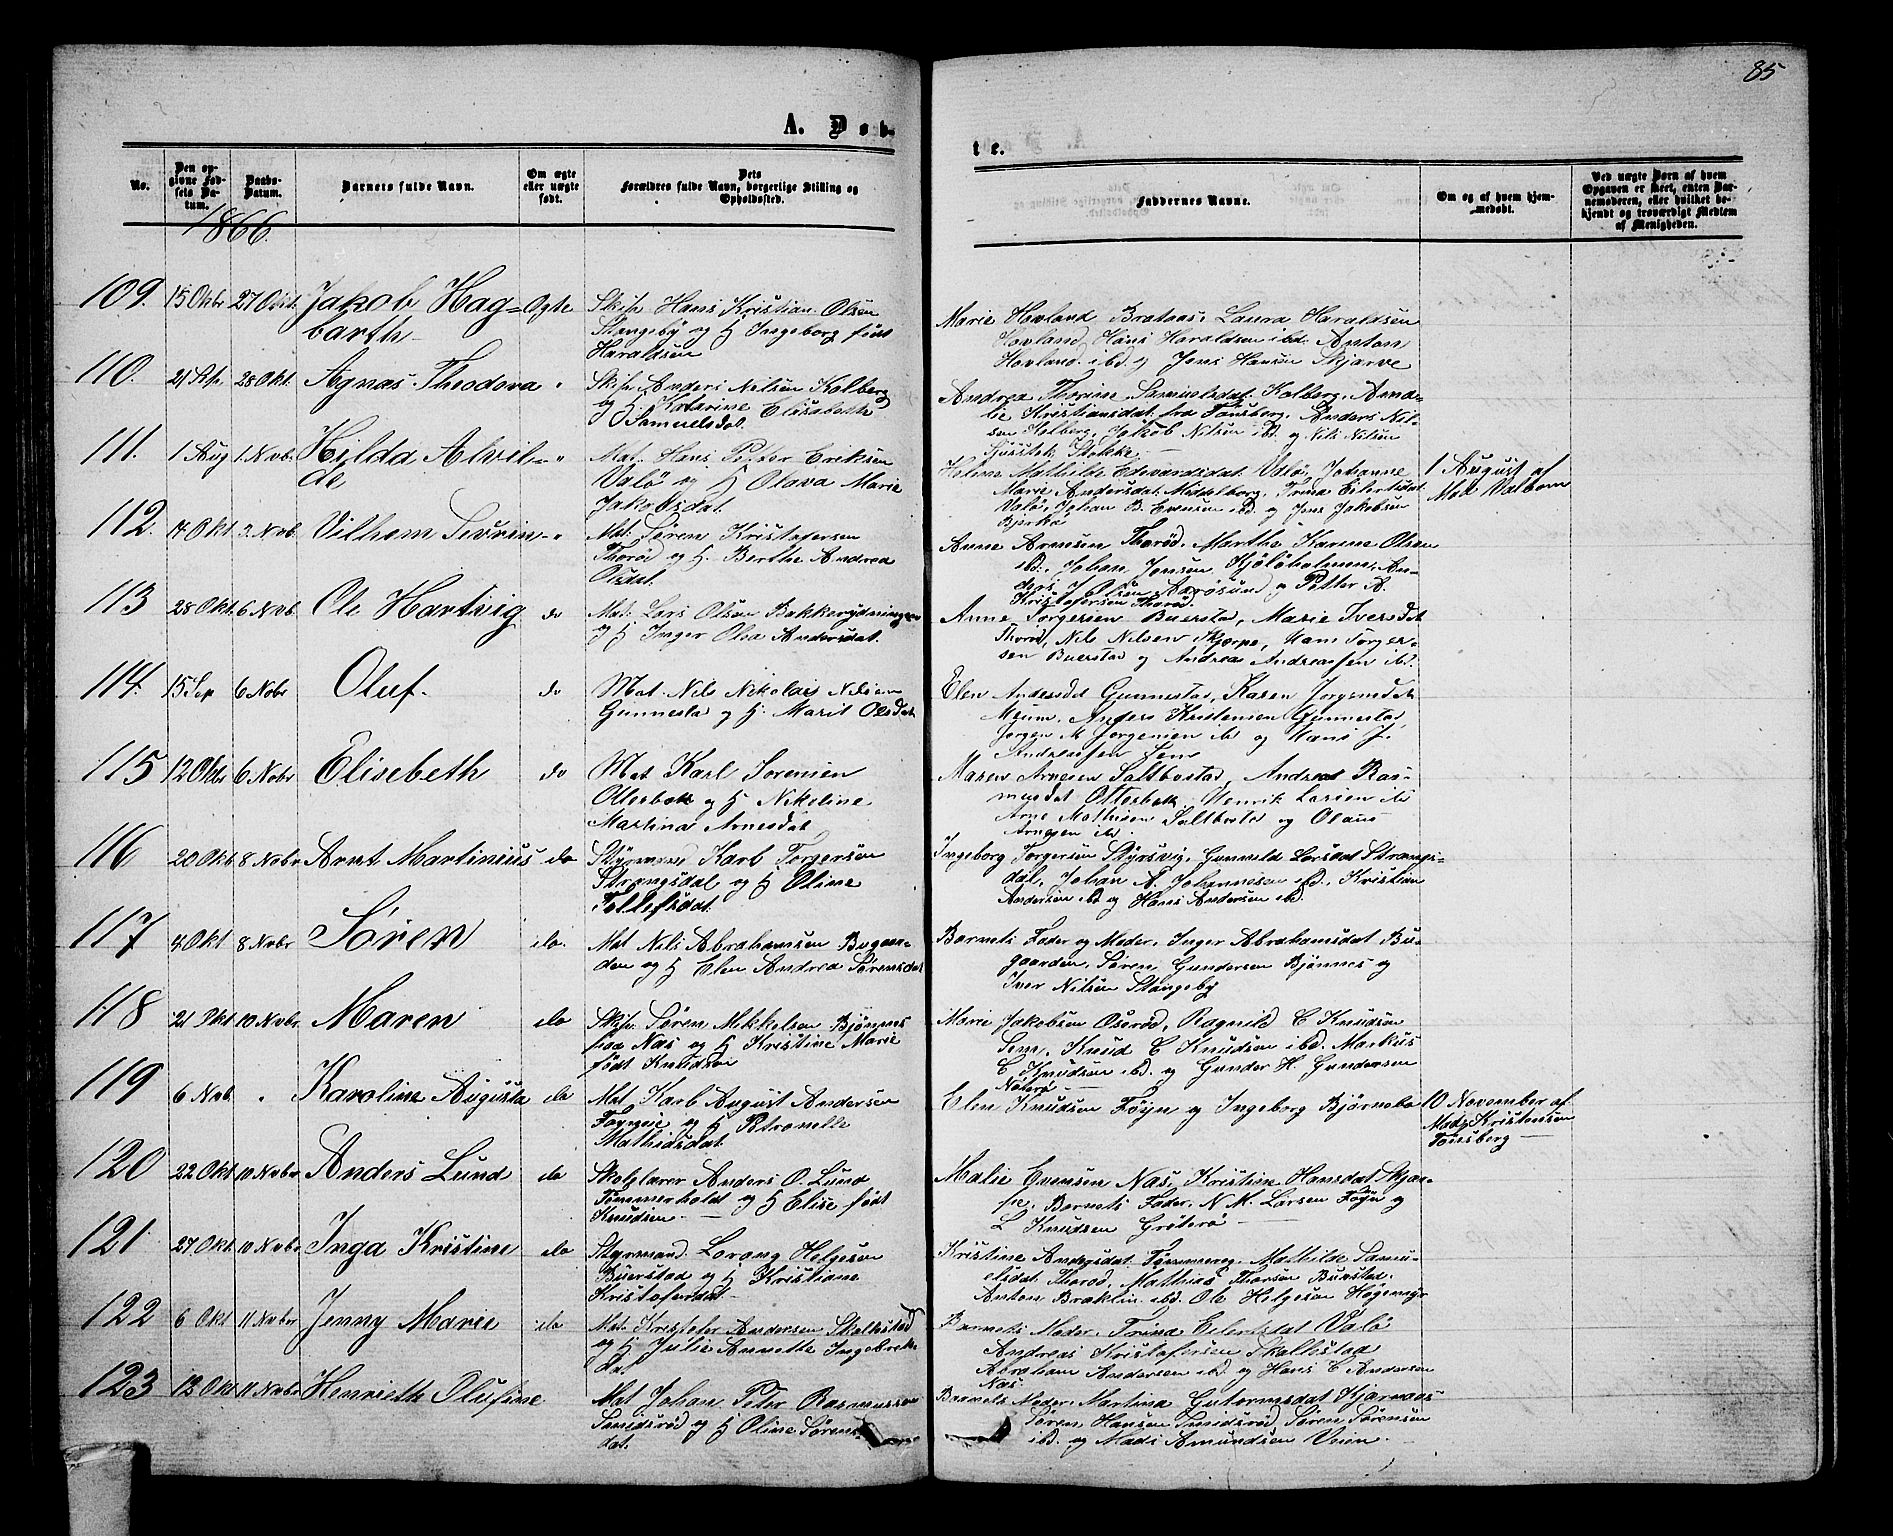 85
A. Døb-
te.
No.
Den op-
givne Fød-
sels Da-
tum.
Daabs-
Datum.
Barnets fulde Navn.
Om ægte
eller uægte
født.
Dets
Forældres fulde Navn, borgerlige Stilling og
Opholdssted.
Faddernes Navne.
Om og af hvem hjem-
medøbt.
Ved uægte Børn af hvem
Opgaven er skeet, enten Bar-
nemoderen, eller hvilket be-
kjendt og troværdigt Medlem
af Menigheden.
1866.
109. 15 Okbr 27 Okt. Jakob Hag= Ægte Skifr Hans Kristian Olsen
barth Slangeby og H Ingeborg født
Haraldsen
Marie Hovland Brataas, Laura Haraldsen
Hovland, Hans Haraldsen ibd. Anton
Hovland ibd. og Jens Hansen Skjærve
110. 21 Sep. 28 Okt. Agnas Theodora " Skifr Anders Nilsen Kolberg
og H. Katrine Elisabeth
Samuelsdat.
Andrea Thorine Samuelsdat. Kolberg, Ama-
lie Kristiansdat. fra Tønsberg, Anders Nil-
sen Kolberg, Jakob Nilsen ibd. og Nils Nilsen
Stokke
111. 1 Aug 1. Nvb. Hilda Alvil- " Mat. Hans Petter Eriksen
de Valø og H Olava Marie
Jakobsdat.
Helene Mathilde Edvardsdat. Valø, Johanne
Marie Andersdat. Middelborg, Trina Eilertsdat
Valø, Johan B. Evensen ibd. og Jens Jakobsen
Bjerke
1 August af
Mad. Valbom
112. 14 Okt 2. Nvb. Vilhem Sevrin " Mat. Søren Kristofersen
Thorød og H. Berthe Andrea
Olsdat.
Anne Arnesen Thorød, Marthe Karine Olsen
ibd., Johan Jensen Kjøløholmen, An-
ders J Olsen Aarøsund og Petter A.
Kristofersen Thorød.
113 28 Okt. 6 Nvb. Ole Hartvig do Mat. Lars Olsen Bakkerydningen
og H Inger Olea Andersdat.
Anne Torgersen Buerstad, Marie Iversdat
Thorød, Nils Nilsen Skjerpe, Hans Torger-
sen Buerstad og Andreas Andreassen ibd.
114. 15 Sep 6 Nobr Oluf. do Mat. Nils Nikolais Nilsen
Gunnesta og H. Marit Olsdat
Elen Andersdat Gunnestad, Karen Jorgensdat
Meum, Anders Kristensen Gunnestad,
Jørgen M Jørgensen ibd og Hans J.
Andreassen Sem
115 12 Okbr 6 Nobr Elisebeth do Mat Karl Sorensen
Oterbæk og H Nikoline
Martina Arnesdat
Maren Arnesen Saltbustad, Andrea Ras-
musdat Otterbæk, Henrik Larsen ibd
Arne Mathisen Saltbusta og Olaus
Arnesen ibd.
116 20 Okt. 8 Nobr Arnt Martinius do Styrmand Karl Torgersen
Strengsdal og H Oline
Tollefsdat.
Ingeborg Torgersen Styrsvig, Gunnild Larsdat Strengs-
dal, Johan A. Johannesen ibd., Kristian
Andersen ibd og Hans Andersen ibd.
117 4 Okt 8 Nobr Søren do. Mat Nils Abrahamsen Bugaar-
den og H Elen Andrea Sørensdat
Barnets Fader og Moder, Inger Abrahamsdat Bu-
gaarden, Søren Gundersen Bjønnes og
Iver Nilsen Slangeby
118 21 Okt 10 Nobr Maren do Skifr. Søren Mikkelsen Bjønnes
paa Næs og H Kristine Marie
født Knudsen
Marie Jakobsen Oserød, Ragnild C Knudsen
Sem, Knud C Knudsen ibd. Markus
C Knudsen ibd. og Gunder H. Gundersen
Nøterø
119 6 Nvb. " Karoline Augusta do Mat Karl August Andersen
og H Petronelle
Mathisdat.
Elen Knudsen Føyn og Ingeborg Bjørnebo
10 November af
Mad. Kristensen
Tønsberg
120 22 Okt 10 Nobr Anders Lund do Skolelærer Anders O. Lund
Tømmerholt og H Elise født
Knudsen
Malie Evensen Næs, Kristine Hansdat Skjær-
fie, Barnets Fader, N M. Larsen Føyn og
L Knudsen Grøterø
121 27 Okt. 10 Nobr Inga Kristine do Styrmand Lorang Helgesen
Buerstad og H Kristiane
Kristofersdat
Kristine Andersdat. Tømmereg, Mathilde Samu-
elsdat. Thorød, Mathias Thorsen Buerstad,
Anton Braklin ibd. Ole Helgesen
122 6 Okt 11 Nobr Jenny Marie do Mat. Krispeter Andersen Skallestad
og H Julie Annethe Ingebrek-
dat.
Barnets Moder, Trina Eilertsdat Valø
Andreas Kristofersen Skallestad
Abraham Andersen ibd og Hans C Andersen
Næs.
123 12 Okt 11 Nobr Henriette Olufsine Mat Johan Peter Rasmussen
Smidsrød og H Oline Sørens
dat.
Barnets Moder, Martina Gutormsdat Kjærnaas
Søren Hansen Smidsrød, Søren Sørensen
ibd. og Mads Amundsen Veien